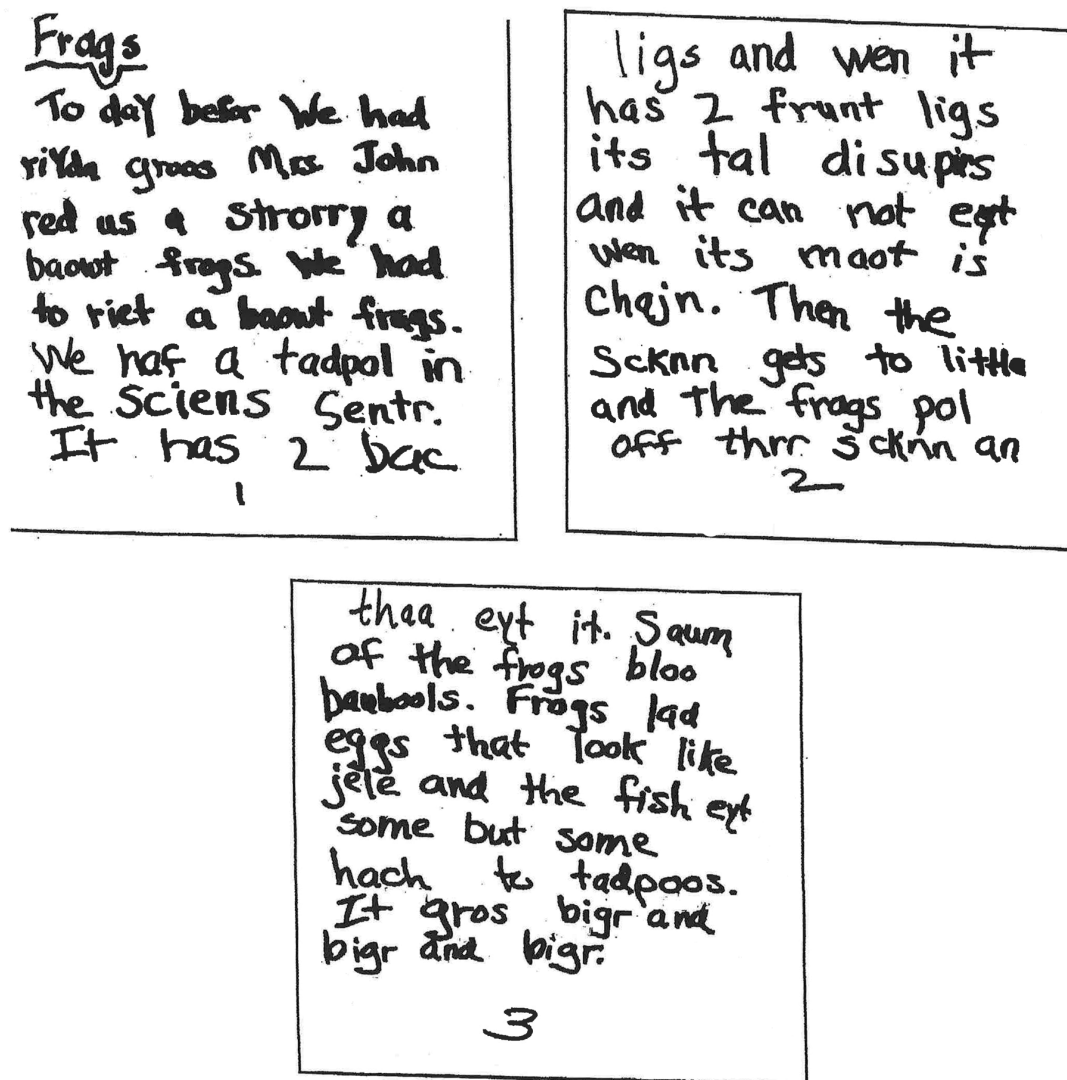 Frags
To day befor We had
riYda groos Mrs. John
red us a strorry a
baowt frogs. We had
to riet a baowt frags.
We haf a tadpol in
the sciens Sentr.
It has 2 bac
1
ligs and wen it
has 2 frunt ligs
its tal disupirs
and it can not eyt
wen its maot is
Chajn. Then the
Scknn gets to little
and The frags pol
off thrr scknn an
2
thaa eyt it. Saum
of the frogs bloo
baubools. Frogs lad
eggs that look like
jele and the fish eyt
some but some
hach to tadpoos.
It gros bigr and
bigr and bigr.
3